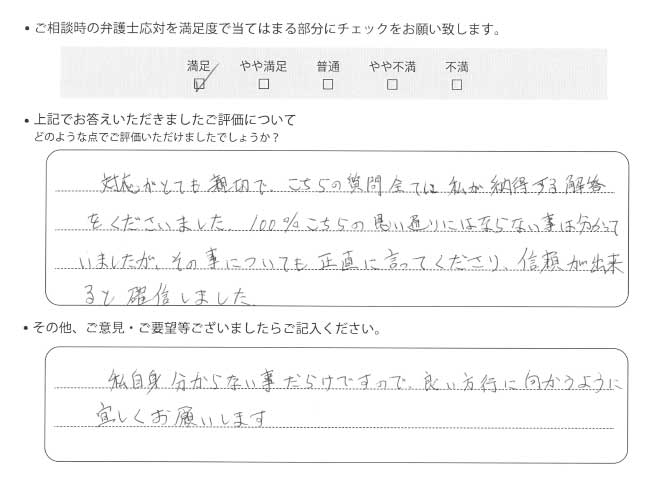 ・ご相談時の弁護士応対を満足度で当てはまる部分にチェックをお願い致します。
満足 やや満足 普通 やや不満 不満
☑ □ □ □ □
・上記でお答えいただきましたご評価について
どのような点でご評価いただけましたでしょうか？
対応がとても親切で、こちらの質問全てに私が納得する解答
をくださいました。100%こちらの思い通りにはならない事は分かって
いましたが、その事についても正直に言ってくださり、信頼が出来
ると確信しました。
・その他、ご意見・ご要望等ございましたらご記入ください。
私自身分からない事だらけですので、良い方行に向かうように
宜しくお願いします